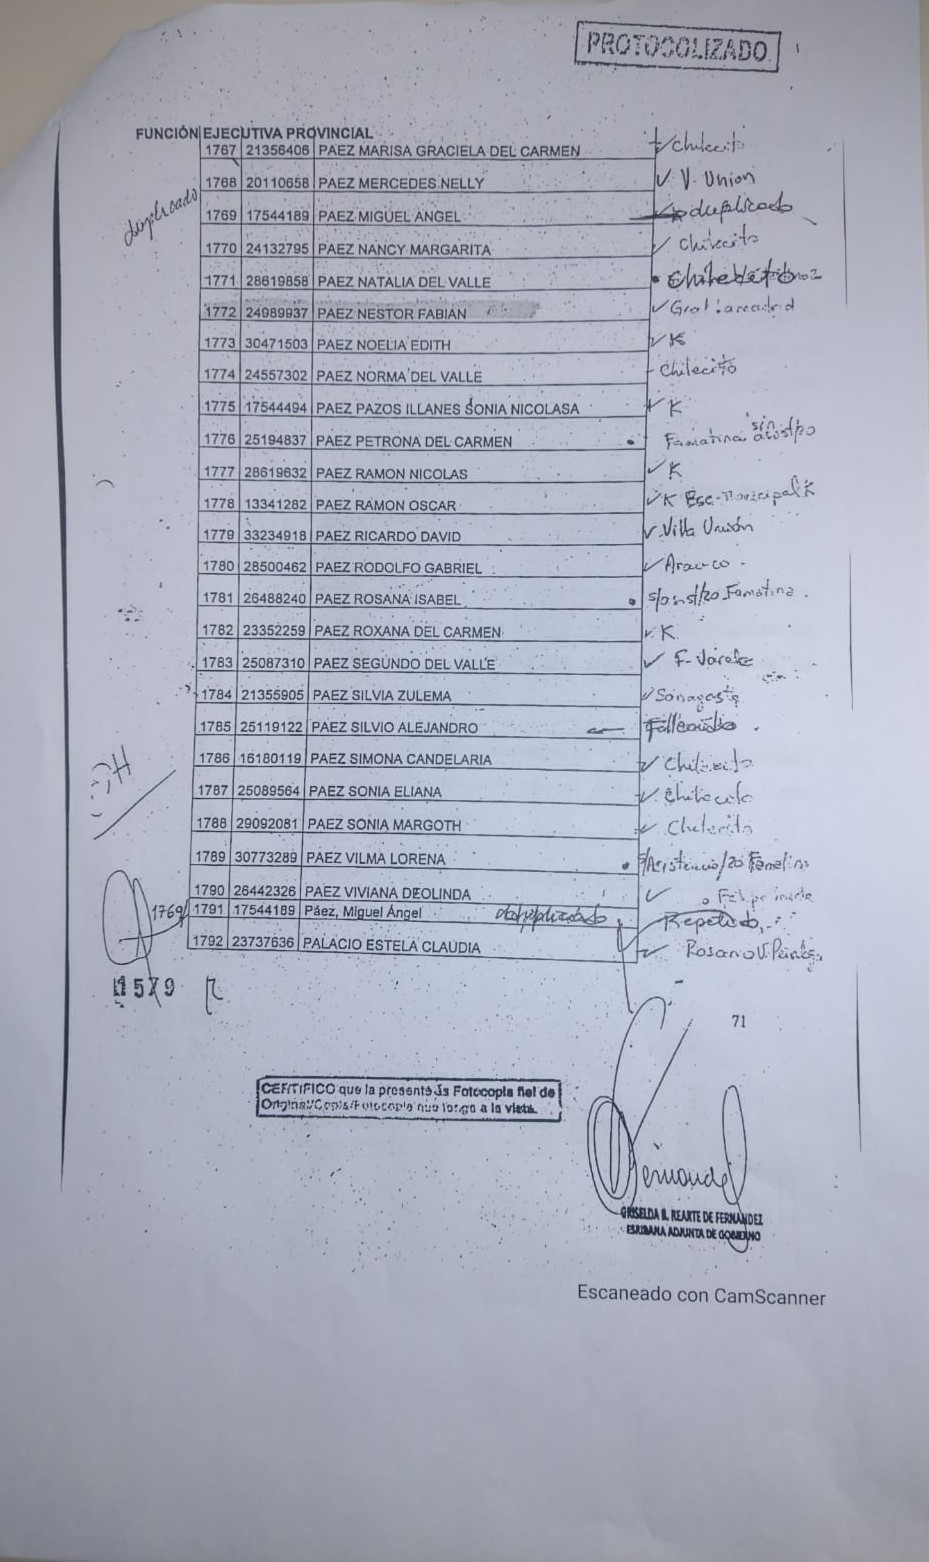 PROTOCOLIZADO
FUNCIÓN EJECUTIVA PROVINCIAL
1767 21356406 PAEZ MARISA GRACIELA DEL CARMEN chilecito
1768 20110658 PAEZ MERCEDES NELLY V. Union
duplicado
1769 17544189 PAEZ MIGUEL ANGEL duplicado
1770 24132795 PAEZ NANCY MARGARITA chilecito
1771 28619858 PAEZ NATALIA DEL VALLE
1772 24989937 PAEZ NESTOR FABIAN Gral Lamadrid
1773 30471503 PAEZ NOELIA EDITH K
1774 24557302 PAEZ NORMA DEL VALLE Chilecito
1775 17544494 PAEZ PAZOS ILLANES SONIA NICOLASA K
1776 25194837 PAEZ PETRONA DEL CARMEN Famatina sin
1777 28619632 PAEZ RAMON NICOLAS K
1778 13341282 PAEZ RAMON OSCAR K Esc. Municipal K
1779 33234918 PAEZ RICARDO DAVID Villa Unión
1780 28500462 PAEZ RODOLFO GABRIEL Arauco
1781 26488240 PAEZ ROSANA ISABEL Famatina.
1782 23352259 PAEZ ROXANA DEL CARMEN K
1783 25087310 PAEZ SEGUNDO DEL VALLE F. Varela
1784 21355905 PAEZ SILVIA ZULEMA Sanagasta
1785 25119122 PAEZ SILVIO ALEJANDRO Fallecido
1786 16180119 PAEZ SIMONA CANDELARIA Chilecito
1787 25089564 PAEZ SONIA ELIANA Chilecito
1788 29092081 PAEZ SONIA MARGOTH Chilecito
1789 30773289 PAEZ VILMA LORENA
1790 26442326 PAEZ VIVIANA DEOLINDA
1769 1791 17544189 Páez, Miguel Ángel Repetido
1792 23737636 PALACIO ESTELA CLAUDIA Rosario V. Peñaloza
1579
71
CERTIFICO que la presente es Fotocopia fiel de
Original/Copia/Fotocopia que tengo a la vista.
GRISELDA B. REARTE DE FERNANDEZ
ESRIBANA ADJUNTA DE GOBIERNO
Escaneado con CamScanner